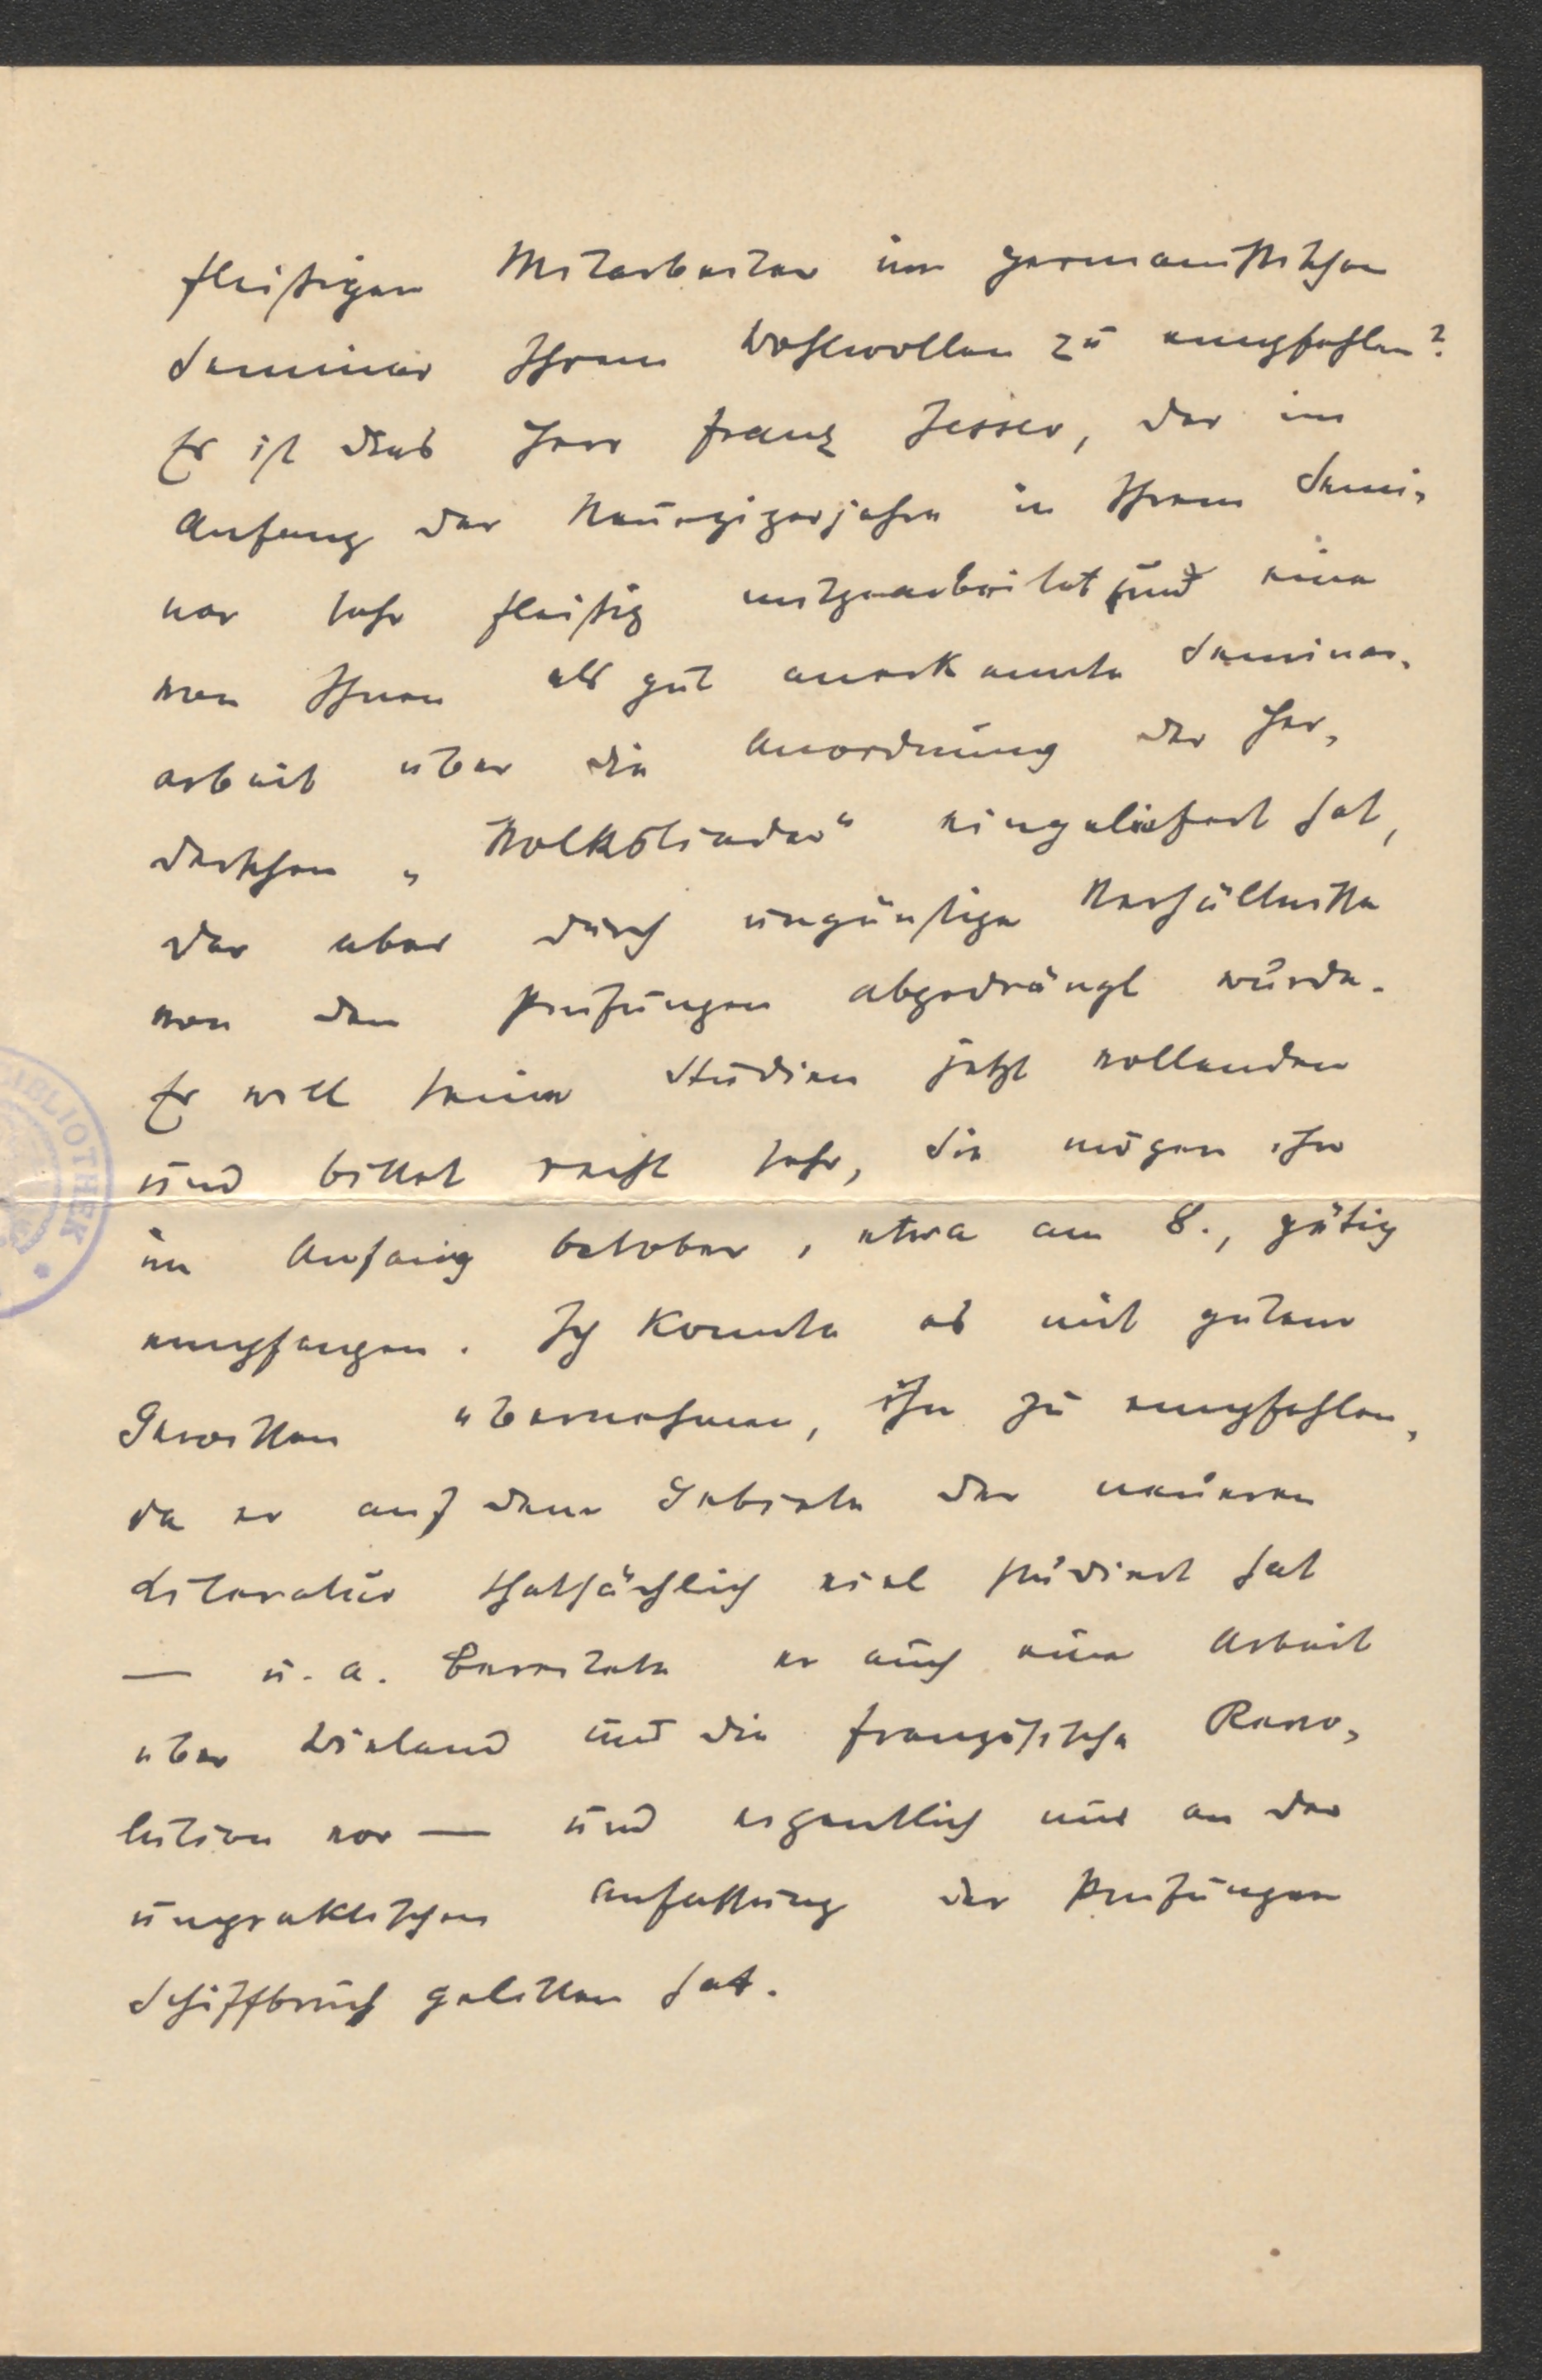 fleißigen Mitarbeiter im germanistischen
Seminar Ihrem Wohlwollen zu empfehlen?
Es ist dies Herr Franz Jesser, der im
Anfang der Neunzigerjahre in Ihrem Semi-
nar sehr fleißig mitgearbeitet und eine
von Ihnen als gut anerkannte Seminar-
arbeit über die Anordnung der Her-
derschen „Volkslieder“ eingeliefert hat,
der aber durch ungünstige Verhältnisse
von den Prüfungen abgedrängt wurde.
Er will seine Studien jetzt vollenden
und bittet recht sehr, Sie mögen ihn
im Anfang October, etwa am 8., gütig
empfangen. Ich konnte es mit gutem
Gewissen übernehmen, ihn zu empfehlen,
da er auf dem Gebiete der neueren
Literatur thatsächlich viel studiert hat
— u. a. bereitete er auch eine Arbeit
über Wieland und die französische Revo-
lution vor — und eigentlich nur an der
unpraktischen Anfassung der Prüfungen
Schiffbruch gelitten hat.
BIBLIOTHEK